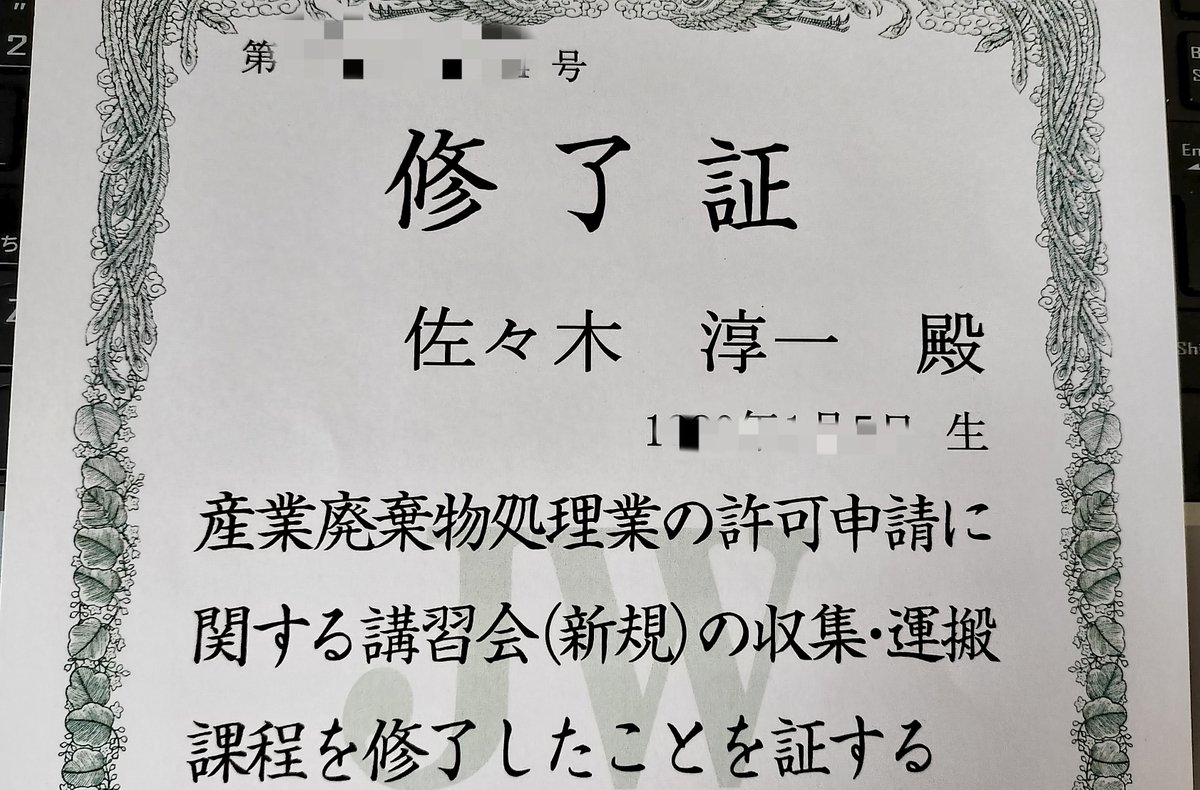 第 号
修了証
佐々木 淳一 殿
生
産業廃棄物処理業の許可申請に
関する講習会(新規)の収集・運搬
課程を修了したことを証する
JW